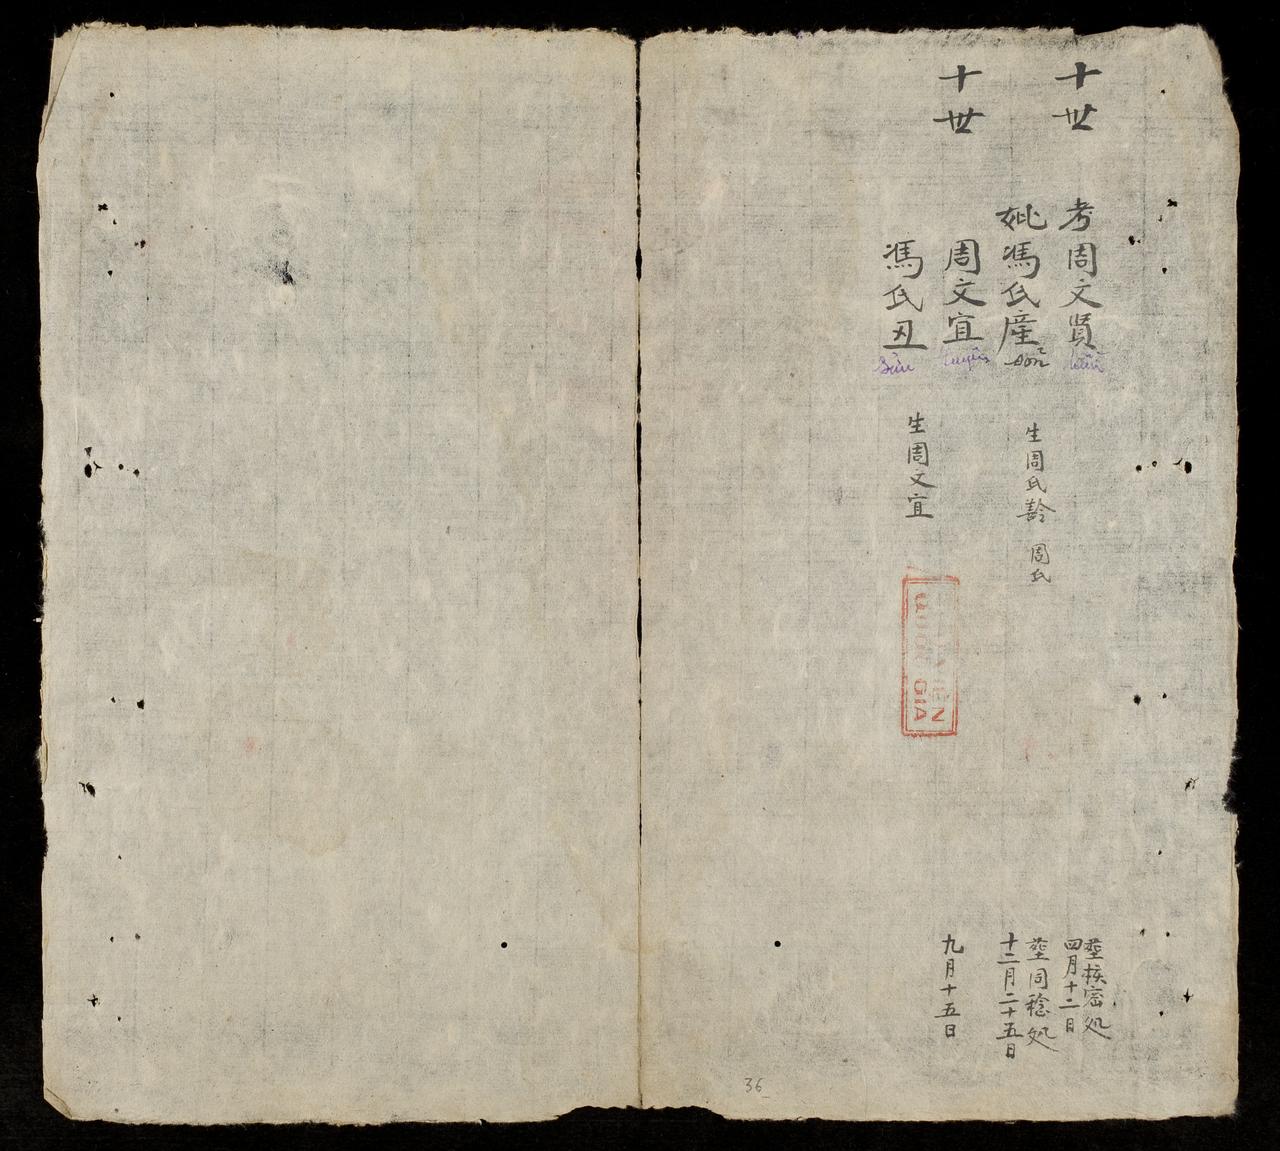 十世
考周文賢
妣馮氏産
生周氏齡 周氏
塟核密処
四月十二日
塟同稔処
十二月二十五日
十世
周文宜
馮氏丑
Sửu
生周文宜
九月十五日
QUỐC GIA
36